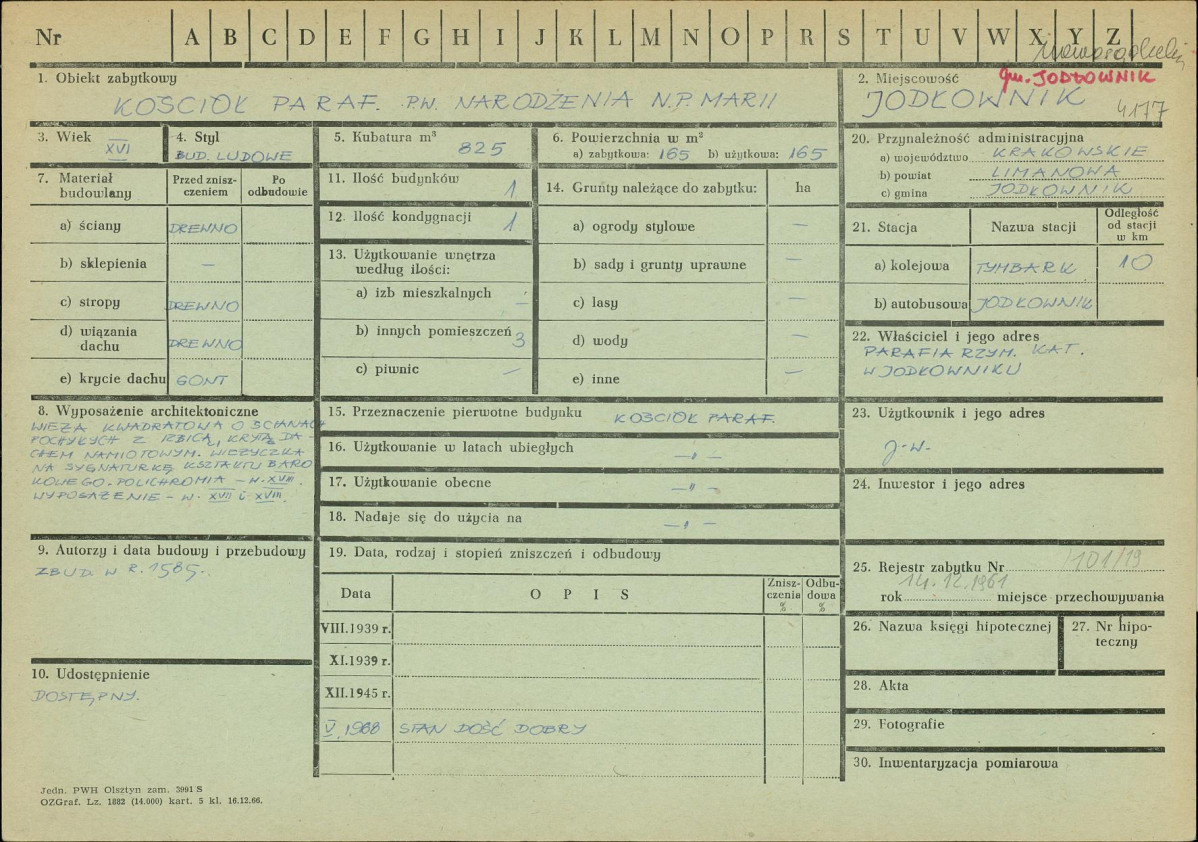 Nr A B C D E F G H I J K L M N O P R S T U V W X Y Z
gm. JODŁOWNIK
1. Obiekt zabytkowy
KOŚCIÓŁ PARAF. P.W. NARODZENIA N.P. MARII
2. Miejscowość
JODŁOWNIK
4177
3. Wiek
XVI
4. Styl
BUD. LUDOWE
5. Kubatura m³
825
6. Powierzchnia w m²
a) zabytkowa: 165 b) użytkowa: 165
7. Materiał budowlany
Przed znisz-
czeniem
Po
odbudowie
a) ściany DREWNO
b) sklepienia —
c) stropy DREWNO
d) wiązania
dachu DREWNO
e) krycie dachu GONT
11. Ilość budynków 1
12. Ilość kondygnacji 1
13. Użytkowanie wnętrza
według ilości:
a) izb mieszkalnych —
b) innych pomieszczeń 3
c) piwnic —
14. Grunty należące do zabytku: ha
a) ogrody stylowe —
b) sady i grunty uprawne —
c) lasy —
d) wody —
e) inne —
8. Wyposażenie architektoniczne
WIEŻA KWADRATOWA O ŚCIANACH
POCHYŁYCH Z IZBICĄ, KRYTA DA-
CHEM NAMIOTOWYM. WIEŻYCZKA
NA SYGNATURKĘ KSZTAŁTU BARO
KOWEGO. POLICHROMIA – W. XVIII.
WYPOSAŻENIE – W. XVII i XVIII.
9. Autorzy i data budowy i przebudowy
ZBUD. W R. 1585.
10. Udostępnienie
DOSTĘPNY.
15. Przeznaczenie pierwotne budynku KOŚCIÓŁ PARAF.
16. Użytkowanie w latach ubiegłych —„—
17. Użytkowanie obecne —„—
18. Nadaje się do użycia na —„—
19. Data, rodzaj i stopień zniszczeń i odbudowy
Data O P I S
Znisz-
czenia
%
Odbu-
dowa
%
VIII.1939 r.
XI.1939 r.
XII.1945 r.
V 1968 STAN DOŚĆ DOBRY
20. Przynależność administracyjna
a) województwo KRAKOWSKIE
b) powiat LIMANOWA
c) gmina JODŁOWNIK
21. Stacja Nazwa stacji
Odległość
od stacji
w km
a) kolejowa TYMBARK 10
b) autobusowa JODŁOWNIK
22. Właściciel i jego adres
PARAFIA RZYM. KAT.
W JODŁOWNIKU
23. Użytkownik i jego adres
j.w.
24. Inwestor i jego adres
25. Rejestr zabytku Nr 101/19
rok 14.12.1961 miejsce przechowywania
26. Nazwa księgi hipotecznej
27. Nr hipo-
teczny
28. Akta
29. Fotografie
30. Inwentaryzacja pomiarowa
Jedn. PWH Olsztyn zam. 3991 S
OZGraf. Lz. 1882 (14.000) kart. 5 kl. 16.12.66.